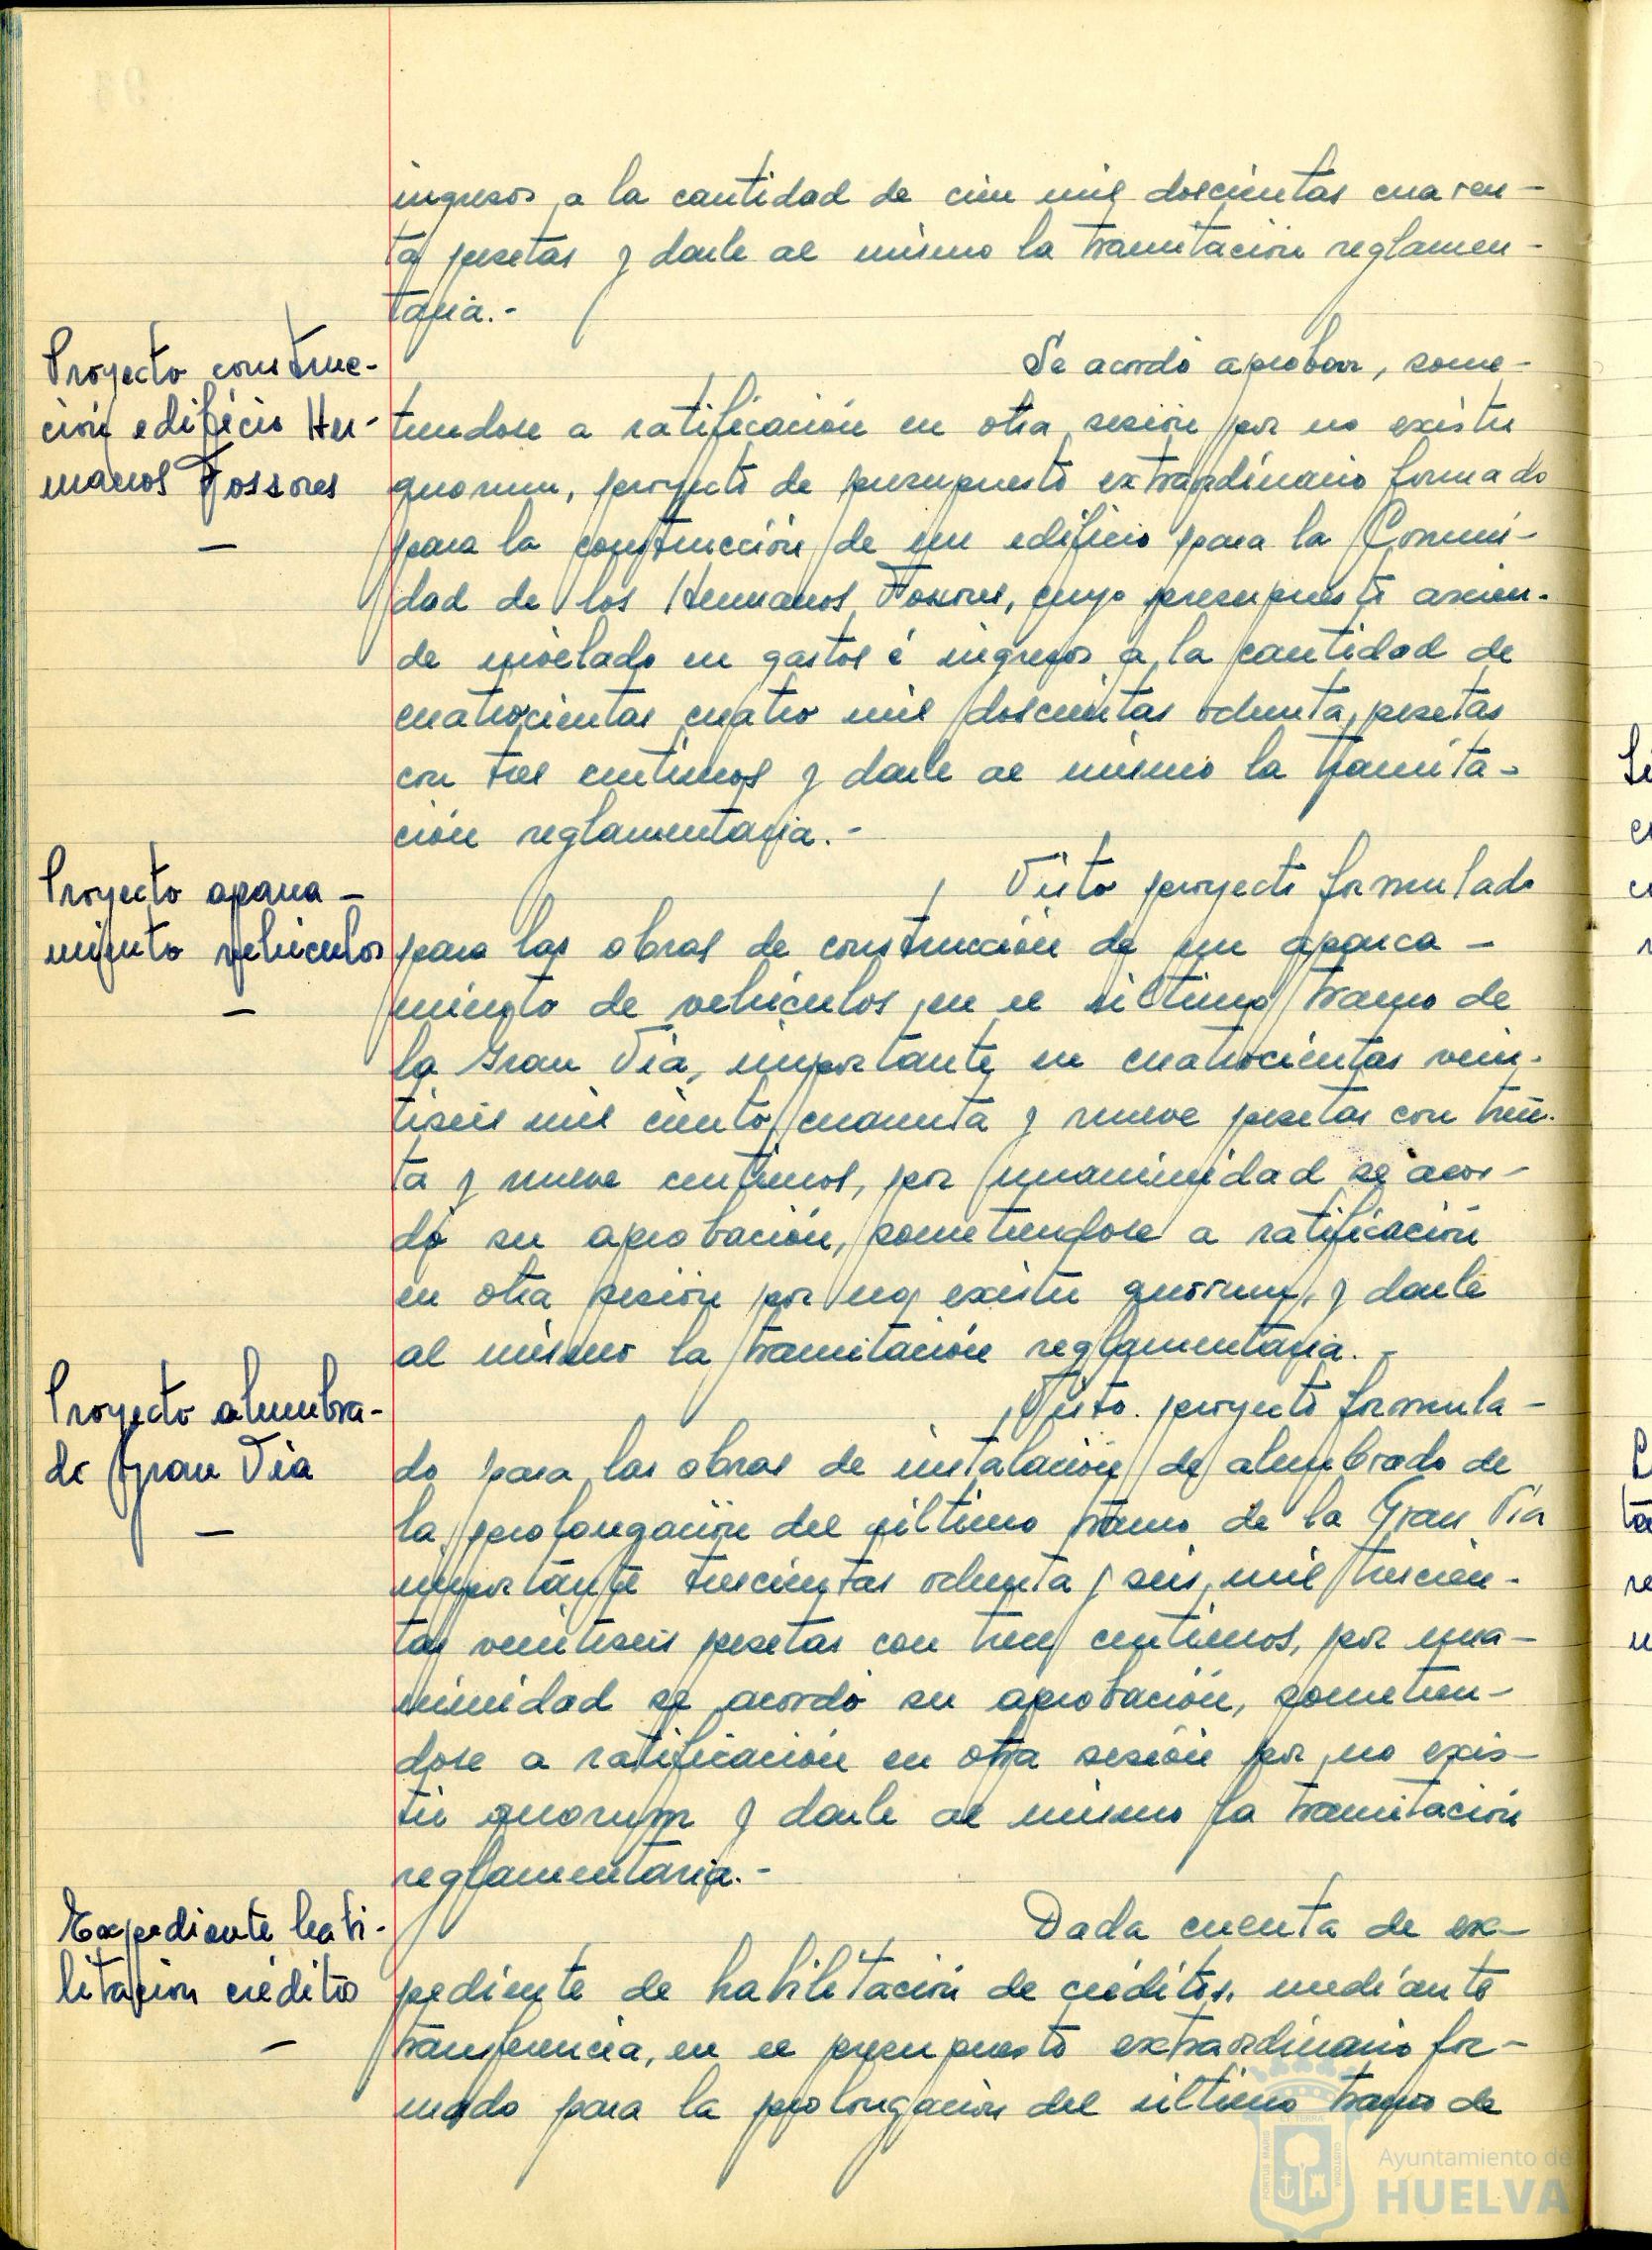 ingresos a la cantidad de cien mil doscientas cuaren-
ta pesetas y darle al mismo la tramitación reglamen-
taria.-
Proyecto construc-
ción edificio Her-
manos Fossores
—
Se acordó aprobar, some-
tiendose a ratificación en otra sesión por no existir
quorum, proyecto de presupuesto extraordinario formado
para la construcción de un edificio para la Comuni-
dad de los Hermanos Fossores, cuyo presupuesto ascien-
de nivelado en gastos é ingresos a la cantidad de
cuatrocientas cuatro mil doscientas ochenta pesetas
con tres centimos y darle al mismo la tramita-
ción reglamentaria.-
Proyecto aparca-
miento vehiculos
—
Visto proyecto formulado
para las obras de construcción de un aparca-
miento de vehículos en el último tramo de
la Gran Via, importante en cuatrocientas vein-
tiseis mil ciento cuarenta y nueve pesetas con trein-
ta y nueve centimos, por unanimidad se acor-
dó su aprobación, sometiendose a ratificación
en otra sesión por no existir quorum, y darle
al mismo la tramitación reglamentaria.-
Proyecto alumbra-
do Gran Via
—
Visto proyecto formula-
do para las obras de instalación de alumbrado de
la prolongación del último tramo de la Gran Via
importante trescientas ochenta y seis mil trescien-
tas veintiseis pesetas con tres centimos, por una-
nimidad se acordó su aprobación, sometien-
dose a ratificación en otra sesión por no exis-
tir quorum y darle al mismo la tramitación
reglamentaria.-
Expediente habi-
litación crédito
—
Dada cuenta de ex-
pediente de habilitación de créditos, mediante
transferencia, en el presupuesto extraordinario for-
mado para la prolongación del último tramo de
Ayuntamiento de
HUELVA